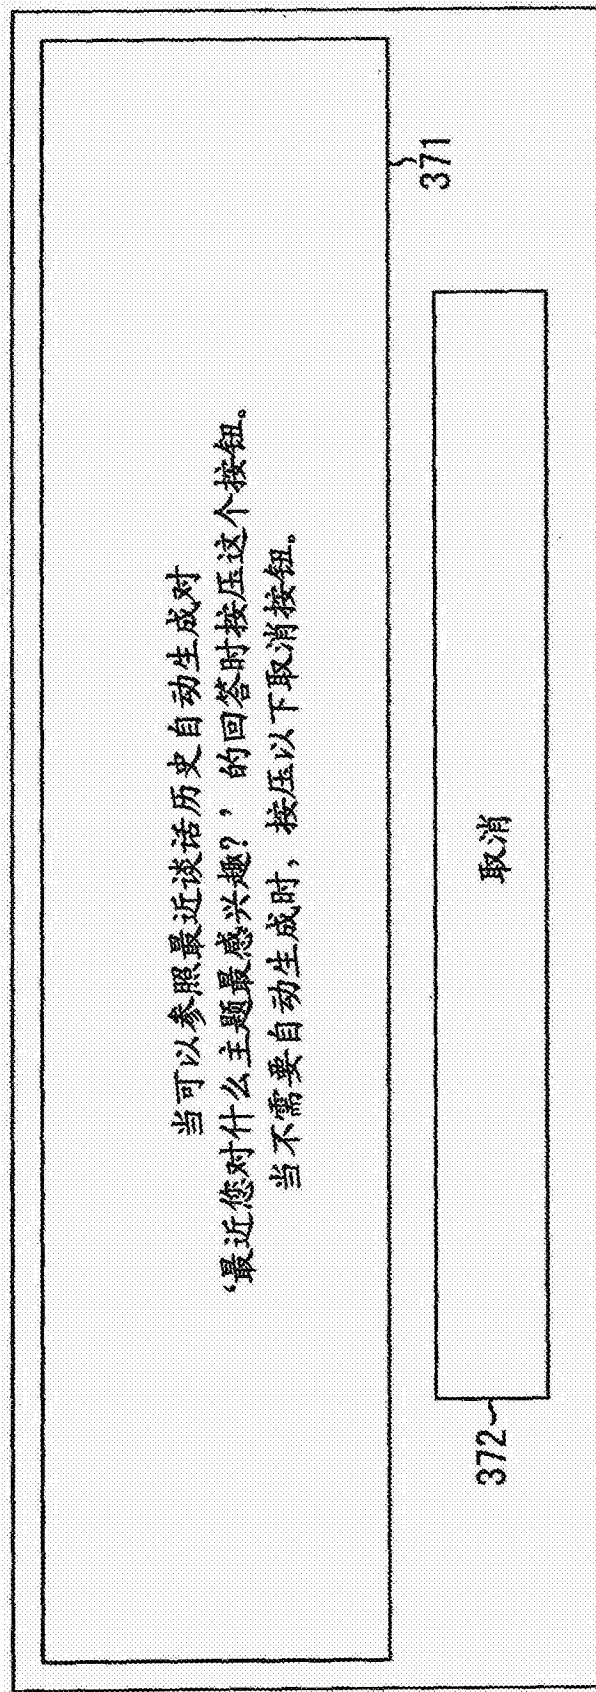 当可以参照最近谈话历史自动生成对
‘最近您对什么主题最感兴趣？’的回答时按压这个按钮。
当不需要自动生成时，按压以下取消按钮。
371
取消
372